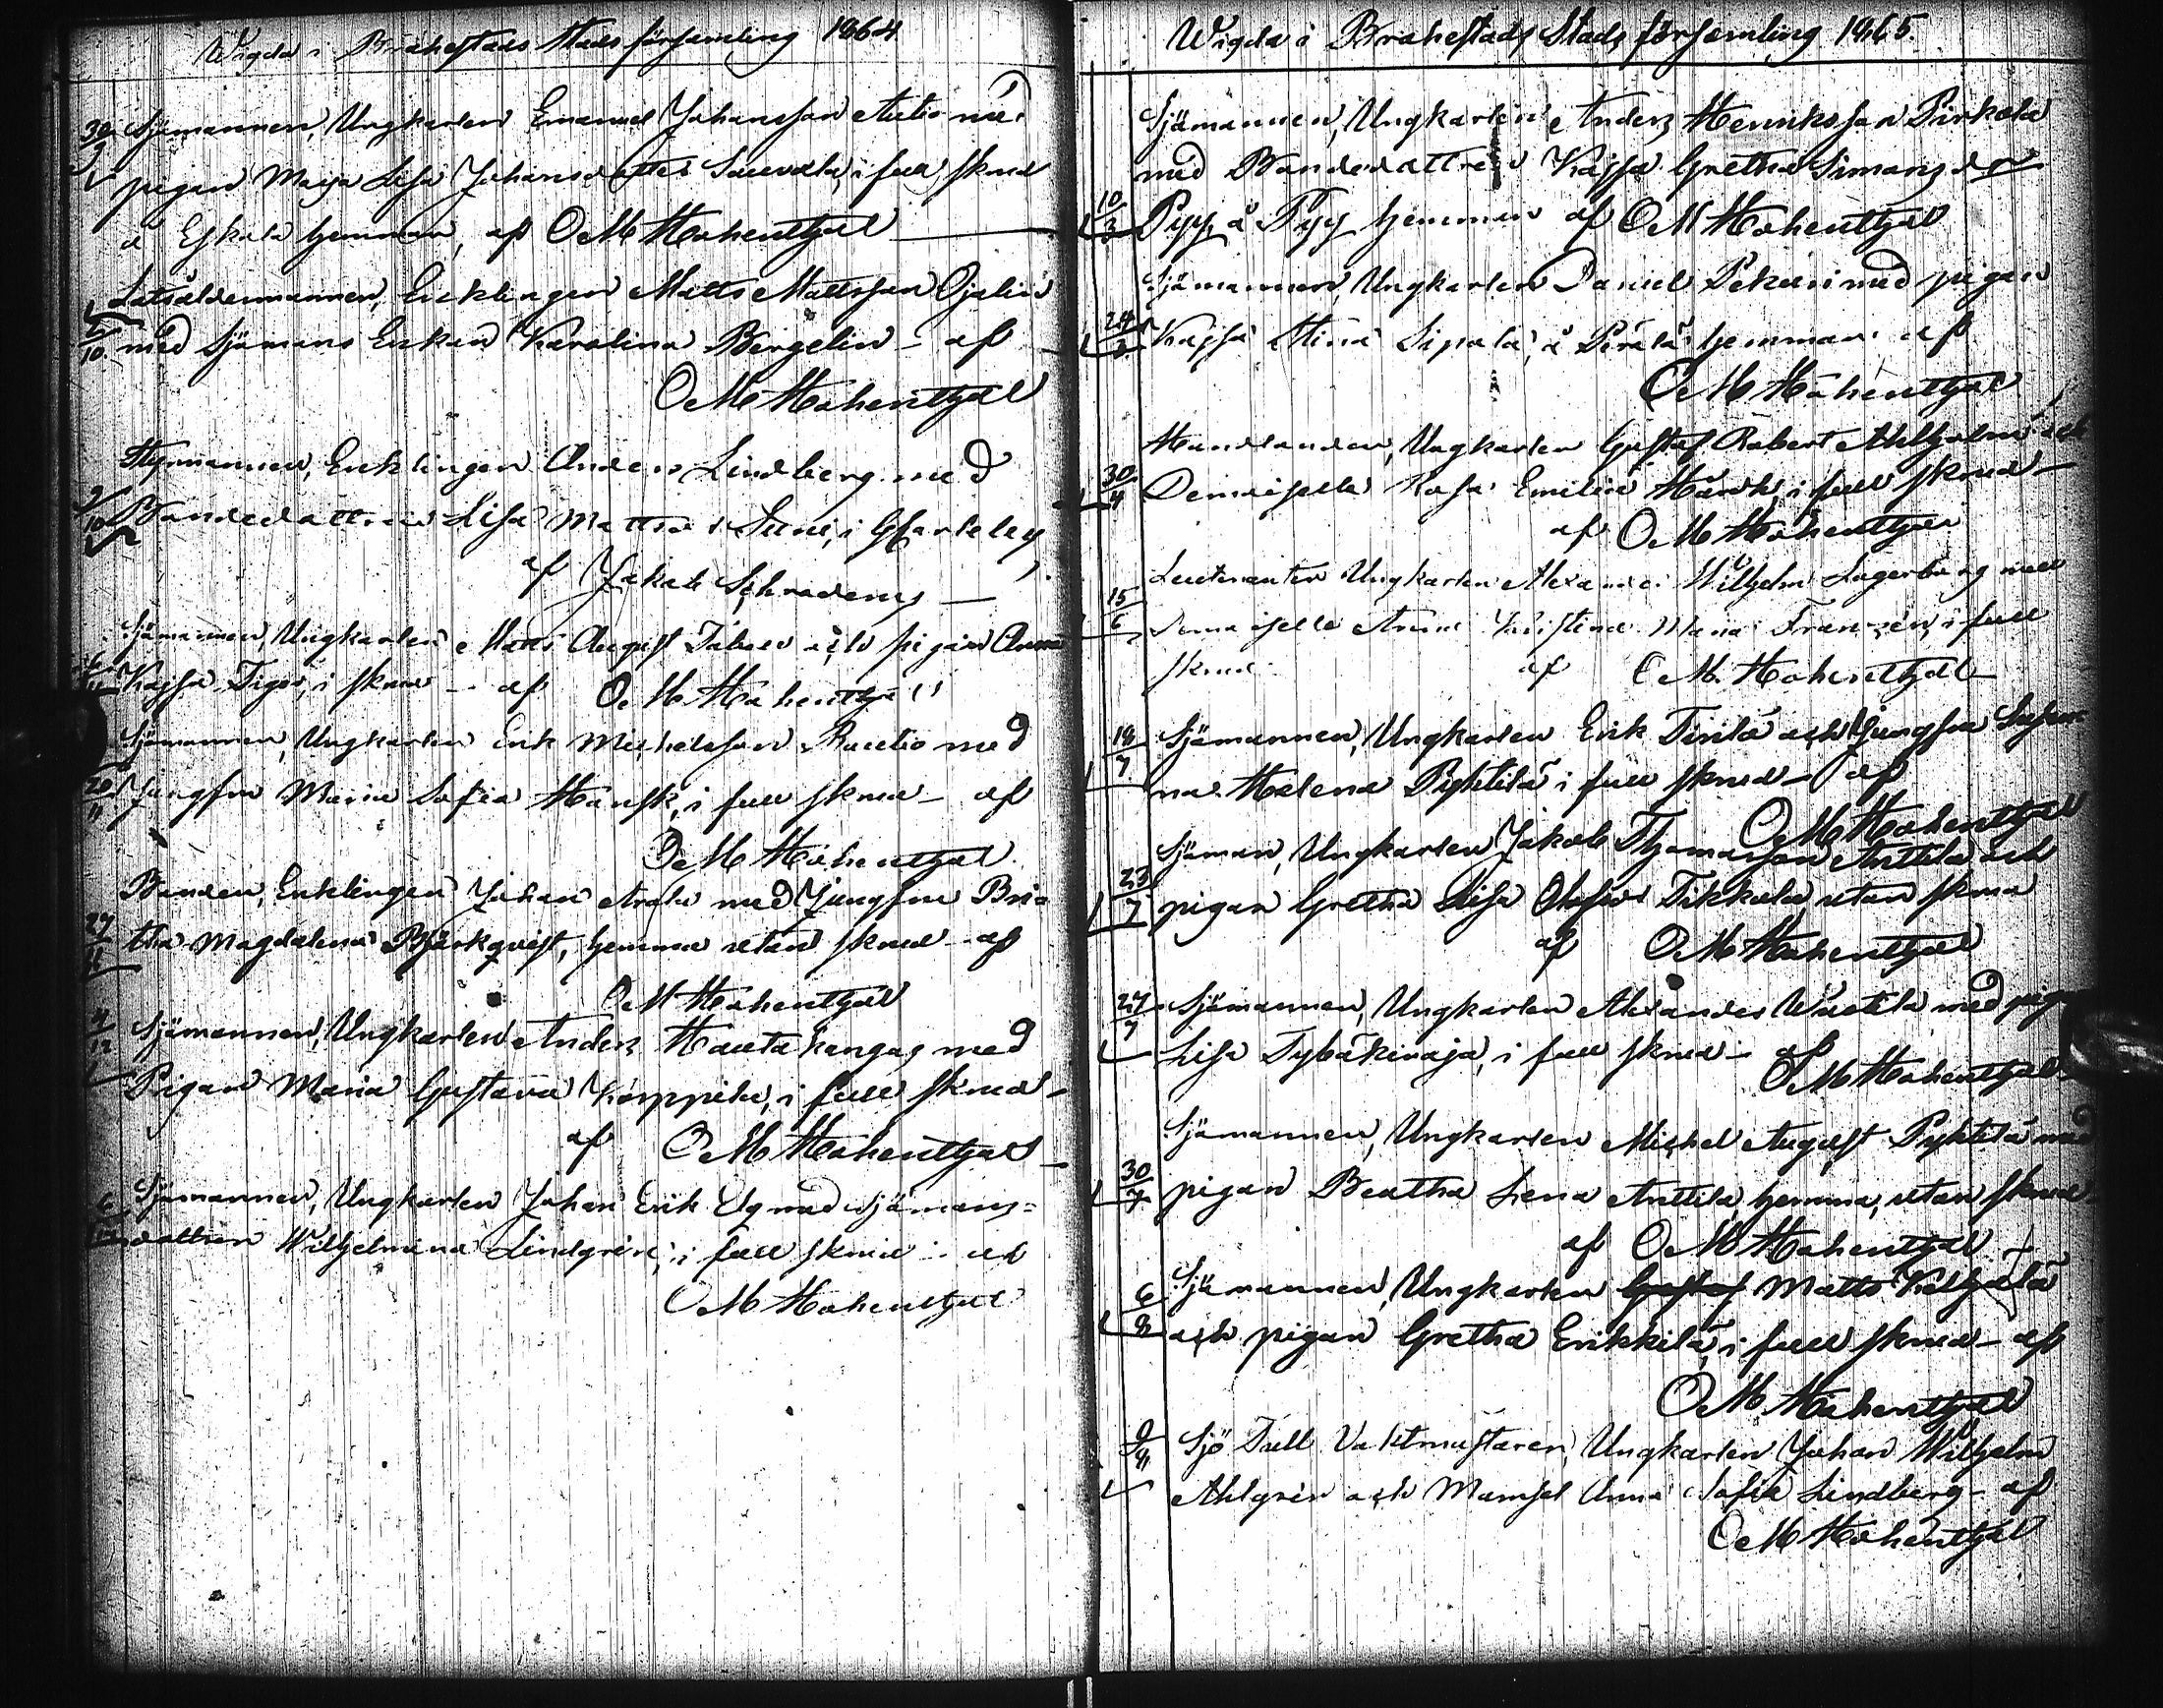 Wigda i Brahestads Stads församling 1864
30 Sjömannen, Ungkarlen Emanuel Johansson Autio med
9 pigan Maja Lisa Johansdotter Sauvala, i full skrud
å Eskola hemman, af O M Hohenthal
2 Lotsåldermannen, Enklingen Matts Mattsson Ojelin
10 med Sjömans Enkan Karolina Bergelin – af
O M Hohenthal
Styrmannen, Enklingen Anders Lindberg med
9/10 Bondedottren Lisa Mattsd r Suni, i
af Jakob Schroderus –
Sjömannen, Ungkarlen Matts August och pigan Anna
Kajsa Tiger, i skrud – af O M Hohenthal
Sjömannen, Ungkarlen Erik Michelsson Rautio med
20/11 Jungfru Maria Sofia Hansk, i full skrud – af
O M Hohenthal
Bonden, Enklingen Johan med Jungfru Bri=
27/11 tha Magdalena Björkqvist, hemma utan skrud – af
O M Hohenthal
4/12 Sjömannen, Ungkarlen Anders Hautakangas med
Pigan Maria Gustava Korppila, i full skrud –
af O M Hohenthal
6 Sjömannen, Ungkarlen Johan Erik med sjömans=
12 dottren Wilhelmina Lindgren, i full skrud – af
O M Hohenthal
Wigda i Brahestads Stads församling 1865.
Sjömannen, Ungkarlen Anders Henriksson Pirkola
med Bondedottren Kajsa Gretha Simonsd r
10/3 Pyy, å Pyy hemman af O M Hohenthal
Sjömannen, Ungkarlen Daniel Pekuri med pigan
24/3 Kajsa Stina Sipola, å hemman af
O M Hohenthal
Handlanden, Ungkarlen Gustaf Robert Ahlholm och
30/4 Demoiselle Rosa Emilie Hårdh, i full skrud –
af O M Hohenthal
Lieutenanten Ungkarlen Alexander Wilhelm Lagerborg med
15/6 Demoiselle Anna Kristina Maria Franzén, i full
skrud af O M Hohenthal
18 Sjömannen, Ungkarlen Erik Tirilä och Jungfru Susan=
7 na Helena Pyhtilä i full skrud – af
O M Hohenthal
Sjöman, Ungkarlen Jakob Thomasson Anttila och
23/7 pigan Gretha Lisa Olofsdr Tikkala, utan skrud
af O M Hohenthal
27/7 Sjömannen, Ungkarlen Alexander med pig
Lisa Sybäkinaja, i full skrud – af
O M Hohenthal
Sjömannen, Ungkarlen Michel August Pyhtilä med
30/7 pigan Beatha Lena Anttila, hemma, utan skrud
af O M Hohenthal
6 Sjömannen, Ungkarlen Gustaf Matts
8 och pigan Gretha Erikkilä, i full skrud – af
O M Hohenthal
9/8 Sjö Tull Vaktmästaren, Ungkarlen Johan Wilhelm
Ahlgrén och Mamsel Anna Sofia Lindberg – af
O M Hohenthal